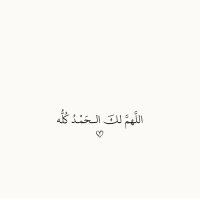 اللَّهمَّ لكَ الـحَمْـدُ كُلُّه